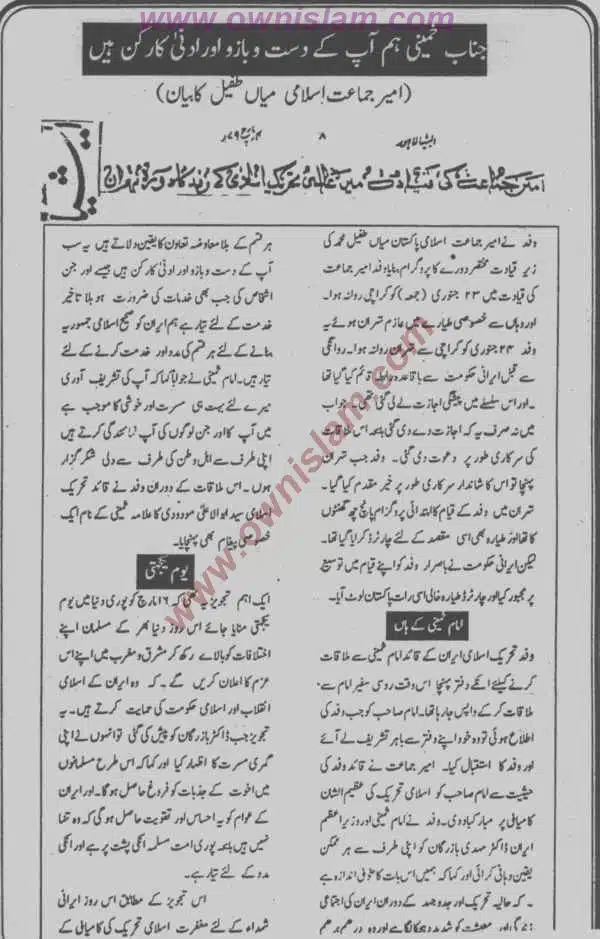 www.ownislam.com
جناب خمینی ہم آپ کے دست و بازو اور ادنیٰ کارکن ہیں
(امیر جماعت اسلامی میاں طفیل کا بیان)
ایشیا لاہور ۸
ایشیا
امیر جماعت کی قیادت میں عالمی تحریک اسلامی کے وفد کا دورہ تہران
وفد نے امیر جماعت اسلامی پاکستان میاں طفیل محمد کی
زیر قیادت مختصر دورے کا پروگرام بنایا وفد امیر جماعت
کی قیادت میں ۲۳ جنوری (جمعہ) کو کراچی روانہ ہوا۔
اور وہاں سے خصوصی طیارے میں عازم تہران ہوئے یہ
وفد ۲۴ جنوری کو کراچی سے تہران روانہ ہوا۔ روانگی
سے قبل ایرانی حکومت سے باقاعدہ رابطہ قائم کیا گیا تھا
۔اور اس سلسلے میں پیشگی اجازت لے لی گئی تھی۔ جواب
میں نہ صرف یہ کہ اجازت دے دی گئی بلکہ اس ملاقات
کی سرکاری طور پر دعوت دی گئی۔ وفد جب تہران
پہنچا تو اس کا شاندار سرکاری طور پر خیر مقدم کیا گیا۔
تہران میں وفد کے قیام کا ابتدائی پروگرام پانچ چھ گھنٹوں
کا تھا اور طیارہ بھی اسی مقصد کے لئے چارٹرڈ کرایا گیا تھا۔
لیکن ایرانی حکومت نے باصرار وفد کو اپنے قیام میں توسیع
پر مجبور کیا اور چارٹرڈ طیارہ خالی اسی رات پاکستان لوٹ آیا۔
امام خمینی کے ہاں
وفد تحریک اسلامی ایران کے قائد امام خمینی سے ملاقات
کرنے کیلئے انکے دفتر پہنچا اس وقت روسی سفیر امام سے
ملاقات کر کے واپس جا رہا تھا۔ امام صاحب کو جب وفد کی
اطلاع ہوئی تو وہ خود اپنے دفتر سے باہر تشریف لے آئے
اور وفد کا استقبال کیا۔ امیر جماعت نے قائد وفد کی
حیثیت سے امام صاحب کو اسلامی تحریک کی عظیم الشان
کامیابی پر مبارکباد دی۔ وفد نے امام خمینی اور وزیر اعظم
ایران ڈاکٹر مہدی بازرگان کو اپنی طرف سے ہر ممکن
یقین دہانی کرائی اور کہا کہ ہمیں اس بات کا بخوبی اندازہ ہے
۔ کہ حالیہ تحریک اور جدوجہد کے دوران ایران کی اجتماعی
زندگی اور معیشت کو شدید دھچکا لگا ہے اور وہ درہم برہم
ہر قسم کے بلا معاوضہ تعاون کا یقین دلاتے ہیں یہ سب
آپ کے دست و بازو اور ادنیٰ کارکن ہیں جیسے اور جن
اشخاص کی جب بھی خدمات کی ضرورت ہو بلا تاخیر
خدمت کے لئے تیار ہے ہم ایران کو صحیح اسلامی جمہوریہ
بنانے کے لئے ہر قسم کی مدد اور خدمت کرنے کے لئے
تیار ہیں۔ امام خمینی نے جواباً کہا کہ آپ کی تشریف آوری
میرے لئے بہت ہی مسرت اور خوشی کا موجب ہے
میں آپ کا اور جن لوگوں کی آپ نمائندگی کرتے ہیں
اپنی طرف سے اہل وطن کی طرف سے دلی شکر گزار
ہوں۔ اس ملاقات کے دوران وفد نے قائد تحریک
اسلامی سید ابوالاعلیٰ مودودی کا علامہ خمینی کے نام ایک
خصوصی پیغام بھی پہنچایا۔
یوم یکجہتی
ایک اہم تجویز یہ تھی کہ ۱۶ مارچ کو پوری دنیا میں یوم
یکجہتی منایا جائے اس روز دنیا بھر کے مسلمان اپنے
اختلافات کو بالائے رکھ کر مشرق و مغرب میں اپنے اس
عزم کا اعلان کریں گے۔ کہ وہ ایران کے اسلامی
انقلاب اور اسلامی حکومت کی حمایت کرتے ہیں۔ یہ
تجویز جب ڈاکٹر بازرگان کو پیش کی گئی تو انہوں نے اپنی
گہری مسرت کا اظہار کیا اور کہا کہ اس طرح مسلمانوں
میں اخوت کے جذبات کو فروغ حاصل ہوگا۔ اور ایران
کے عوام کو یہ احساس اور تقویت حاصل ہوگی کہ وہ تنہا
نہیں ہیں بلکہ پوری امت مسلمہ انکی پشت پر ہے اور انکی
مدد کے لئے تیار ہے۔
اس تجویز کے مطابق اس روز ایرانی
شہداء کے لئے مغفرت اسلامی تحریک کی کامیابی کے
www.ownislam.com